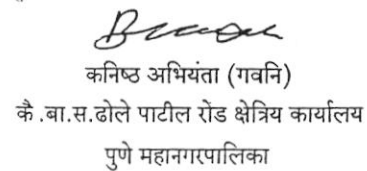 कनिष्ठ अभियंता (गवनि)
कै .बा.स.ढोले पाटील रोंड क्षेत्रिय कार्यालय
पुणे महानगरपालिका